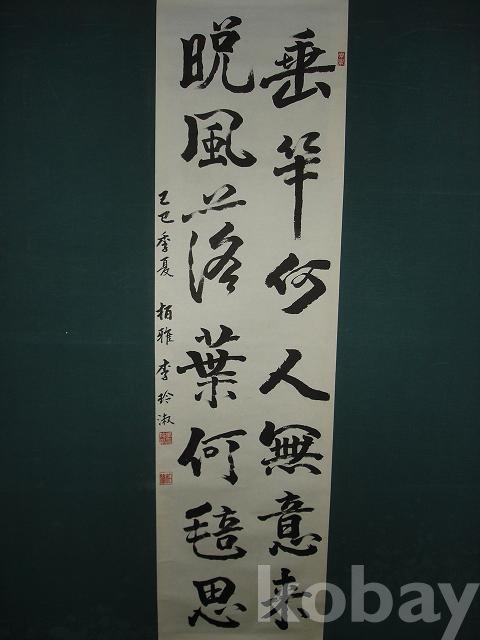 垂竿何人無意来
晩風落葉何毰思
乙巳季夏 栢雅 李玲淑
kobay